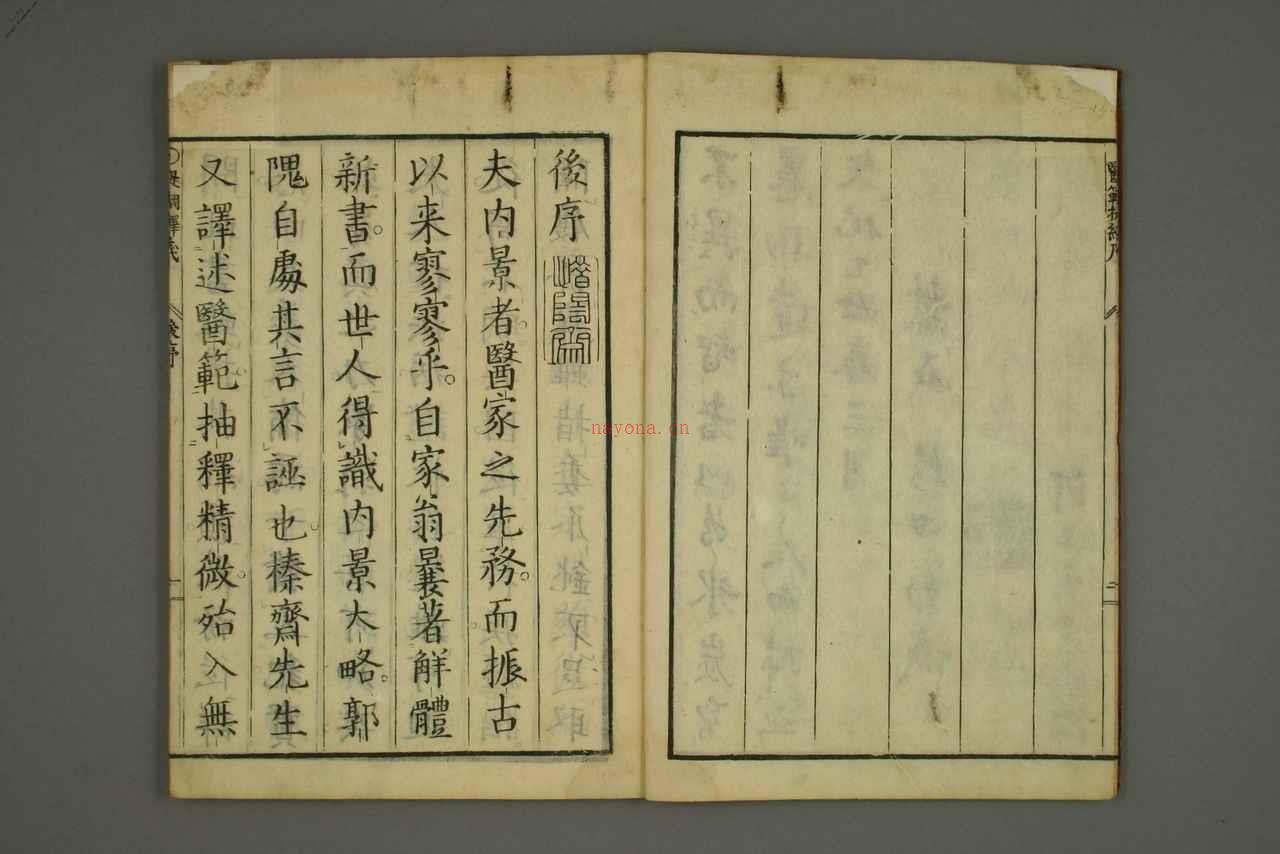 醫範提綱序
二
後序
夫内景者。醫家之先務。而振古
以来寥寥乎。自家翁曩著解體
新書。而世人得識内景大略。郭
隗自處其言不誣也。榛齋先生
又譯述醫範抽釋精微。殆入無
提綱釋義
後序
一
nayona.cn